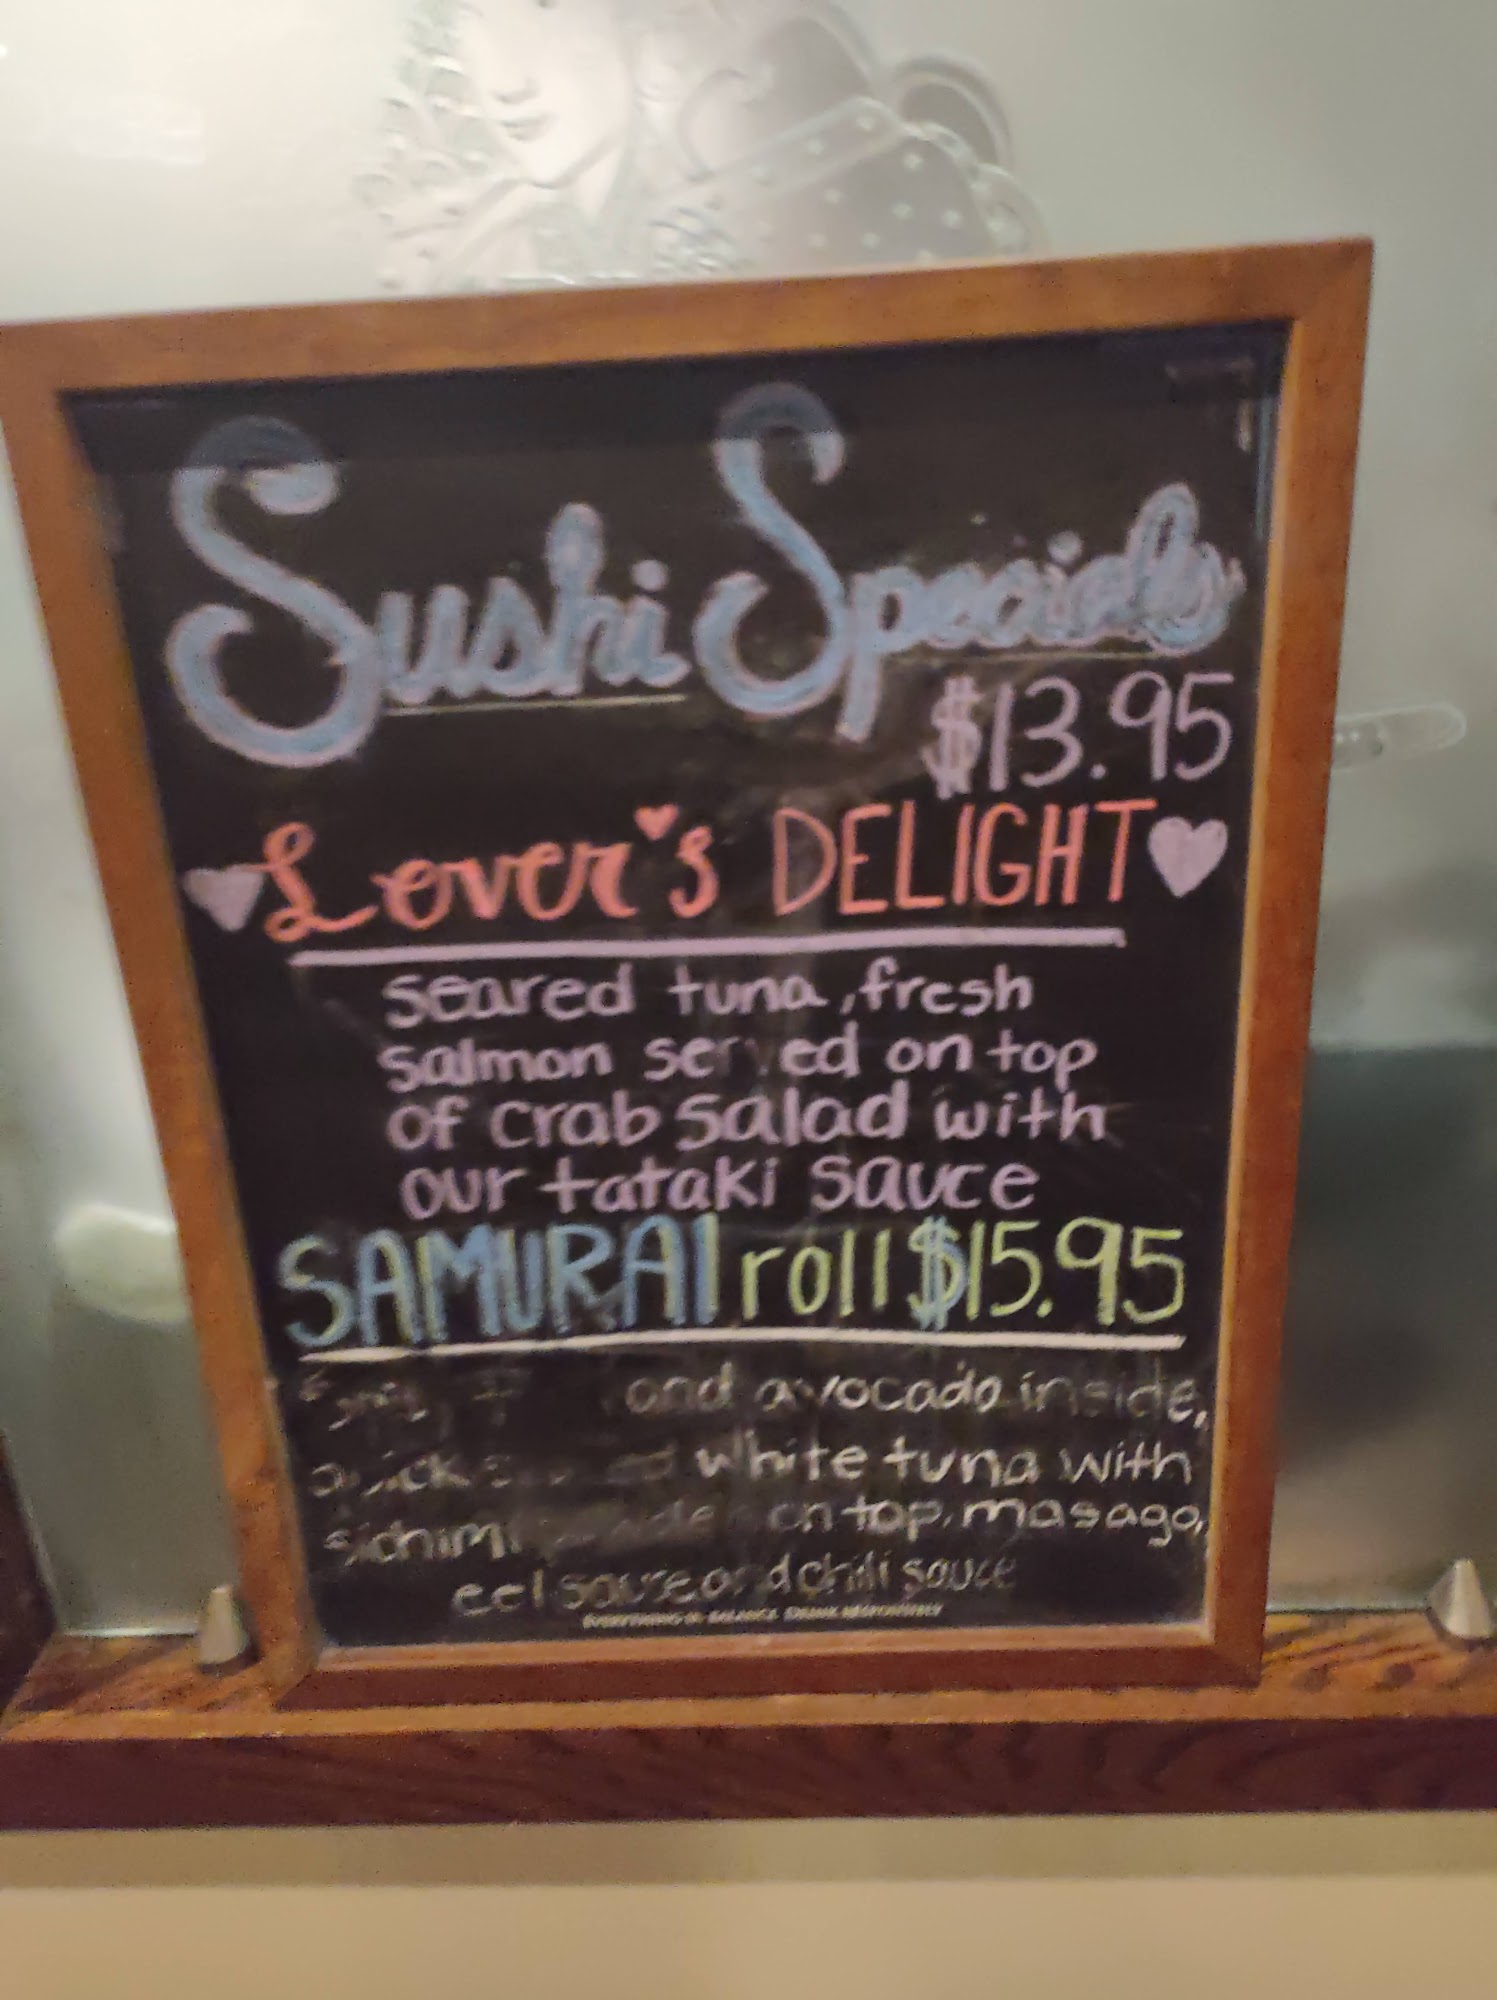 Sushi Specials
$13.95
Lover's DELIGHT
seared tuna, fresh
salmon served on top
of crab salad with
our tataki sauce
SAMURAI roll $15.95
and avocado inside,
white tuna with
on top, masago,
eel sauce and chili sauce